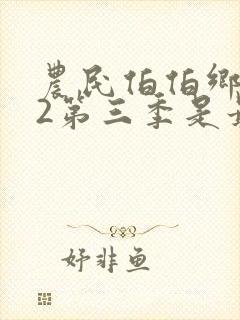 農民伯伯鄉
2第三季是
妤非鱼